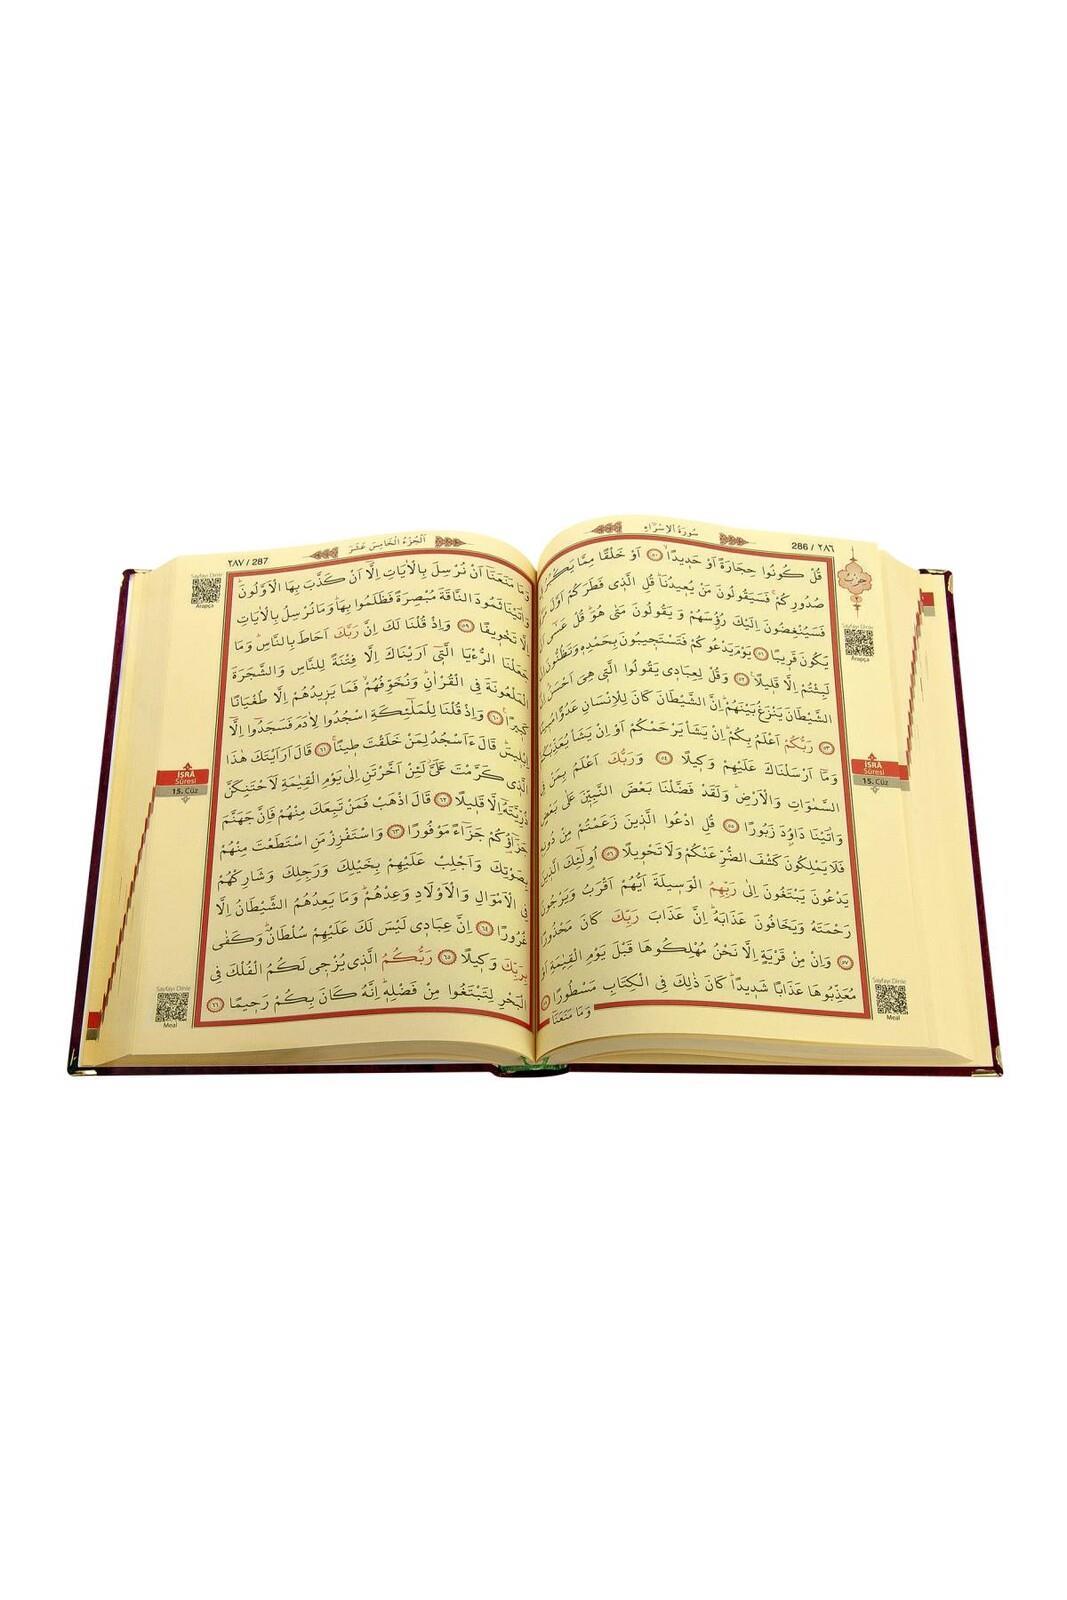 سُورَةُ الْاِسْرَاءِ
286 / ٢٨٦
قُلْ كُونُوا حِجَارَةً اَوْ حَدٖيدًا ﴿٥٠﴾ اَوْ خَلْقًا مِمَّا يَكْبُرُ
صُدُورِكُمْ فَسَيَقُولُونَ مَنْ يُعٖيدُنَا قُلِ الَّذٖى فَطَرَكُمْ اَوَّلَ
فَسَيُنْغِضُونَ اِلَيْكَ رُؤُسَهُمْ وَيَقُولُونَ مَتٰى هُوَ قُلْ عَسٰى
يَكُونَ قَرٖيبًا ﴿٥١﴾ يَوْمَ يَدْعُوكُمْ فَتَسْتَجٖيبُونَ بِحَمْدِهٖ وَتَظُنُّونَ
لَبِثْتُمْ اِلَّا قَلٖيلًا ﴿٥٢﴾ وَقُلْ لِعِبَادٖى يَقُولُوا الَّتٖى هِىَ اَحْسَنُ
الشَّيْطَانَ يَنْزَغُ بَيْنَهُمْ اِنَّ الشَّيْطَانَ كَانَ لِلْاِنْسَانِ عَدُوًّا
﴿٥٣﴾ رَبُّكُمْ اَعْلَمُ بِكُمْ اِنْ يَشَأْ يَرْحَمْكُمْ اَوْ اِنْ يَشَأْ يُعَذِّبْكُمْ
وَمَا اَرْسَلْنَاكَ عَلَيْهِمْ وَكٖيلًا ﴿٥٤﴾ وَرَبُّكَ اَعْلَمُ بِمَنْ
السَّمٰوَاتِ وَالْاَرْضِ وَلَقَدْ فَضَّلْنَا بَعْضَ النَّبِيّٖنَ عَلٰى بَعْضٍ
وَاٰتَيْنَا دَاوُدَ زَبُورًا ﴿٥٥﴾ قُلِ ادْعُوا الَّذٖينَ زَعَمْتُمْ مِنْ دُونِهٖ
فَلَا يَمْلِكُونَ كَشْفَ الضُّرِّ عَنْكُمْ وَلَا تَحْوٖيلًا ﴿٥٦﴾ اُولٰئِكَ الَّذٖينَ
يَدْعُونَ يَبْتَغُونَ اِلٰى رَبِّهِمُ الْوَسٖيلَةَ اَيُّهُمْ اَقْرَبُ وَيَرْجُونَ
رَحْمَتَهُ وَيَخَافُونَ عَذَابَهُ اِنَّ عَذَابَ رَبِّكَ كَانَ مَحْذُورًا
﴿٥٧﴾ وَاِنْ مِنْ قَرْيَةٍ اِلَّا نَحْنُ مُهْلِكُوهَا قَبْلَ يَوْمِ الْقِيٰمَةِ اَوْ
مُعَذِّبُوهَا عَذَابًا شَدٖيدًا كَانَ ذٰلِكَ فِى الْكِتَابِ مَسْطُورًا ﴿٥٨﴾
وَمَا مَنَعَنَا
حزب
٢
Sayfayı Dinle
Arapça
İSRÂ
Sûresi
15. Cüz
Sayfayı Dinle
Meal
اَلْجُزْءُ الْخَامِسَ عَشَرَ
٢٨٧ / 287
وَمَا مَنَعَنَا اَنْ نُرْسِلَ بِالْاٰيَاتِ اِلَّا اَنْ كَذَّبَ بِهَا الْاَوَّلُونَ
وَاٰتَيْنَا ثَمُودَ النَّاقَةَ مُبْصِرَةً فَظَلَمُوا بِهَا وَمَا نُرْسِلُ بِالْاٰيَاتِ
اِلَّا تَخْوٖيفًا ﴿٥٩﴾ وَاِذْ قُلْنَا لَكَ اِنَّ رَبَّكَ اَحَاطَ بِالنَّاسِ وَمَا
جَعَلْنَا الرُّءْيَا الَّتٖى اَرَيْنَاكَ اِلَّا فِتْنَةً لِلنَّاسِ وَالشَّجَرَةَ
الْمَلْعُونَةَ فِى الْقُرْاٰنِ وَنُخَوِّفُهُمْ فَمَا يَزٖيدُهُمْ اِلَّا طُغْيَانًا
كَبٖيرًا ﴿٦٠﴾ وَاِذْ قُلْنَا لِلْمَلٰئِكَةِ اسْجُدُوا لِاٰدَمَ فَسَجَدُوا اِلَّا
اِبْلٖيسَ قَالَ ءَاَسْجُدُ لِمَنْ خَلَقْتَ طٖينًا ﴿٦١﴾ قَالَ اَرَاَيْتَكَ هٰذَا
الَّذٖى كَرَّمْتَ عَلَىَّ لَئِنْ اَخَّرْتَنِ اِلٰى يَوْمِ الْقِيٰمَةِ لَاَحْتَنِكَنَّ
ذُرِّيَّتَهُ اِلَّا قَلٖيلًا ﴿٦٢﴾ قَالَ اذْهَبْ فَمَنْ تَبِعَكَ مِنْهُمْ فَاِنَّ جَهَنَّمَ
جَزَاؤُكُمْ جَزَاءً مَوْفُورًا ﴿٦٣﴾ وَاسْتَفْزِزْ مَنِ اسْتَطَعْتَ مِنْهُمْ
بِصَوْتِكَ وَاَجْلِبْ عَلَيْهِمْ بِخَيْلِكَ وَرَجِلِكَ وَشَارِكْهُمْ
فِى الْاَمْوَالِ وَالْاَوْلَادِ وَعِدْهُمْ وَمَا يَعِدُهُمُ الشَّيْطَانُ اِلَّا
غُرُورًا ﴿٦٤﴾ اِنَّ عِبَادٖى لَيْسَ لَكَ عَلَيْهِمْ سُلْطَانٌ وَكَفٰى
بِرَبِّكَ وَكٖيلًا ﴿٦٥﴾ رَبُّكُمُ الَّذٖى يُزْجٖى لَكُمُ الْفُلْكَ فِى
الْبَحْرِ لِتَبْتَغُوا مِنْ فَضْلِهٖ اِنَّهُ كَانَ بِكُمْ رَحٖيمًا ﴿٦٦﴾
Sayfayı Dinle
Arapça
İSRÂ
Sûresi
15. Cüz
Sayfayı Dinle
Meal